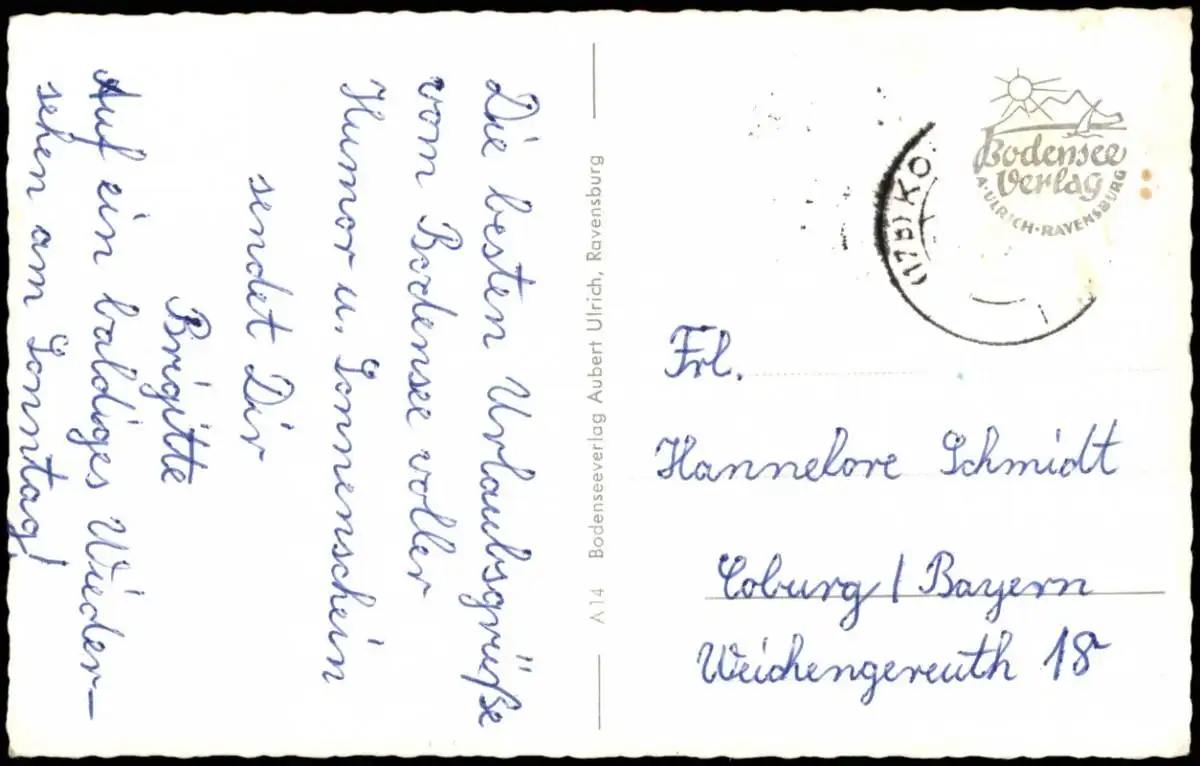 Die besten Urlaubsgrüße
vom Bodensee voller
Humor u. Sonnenschein
sendet Dir
Brigitte
Auf ein baldiges Wieder-
sehen am Sonntag!
A 14 Bodenseeverlag Aubert Ulrich, Ravensburg
Bodensee
Verlag
A·ULRICH·RAVENSBURG
(17b) KO
Frl.
Hannelore Schmidt
Coburg / Bayern
Weichengereuth 18